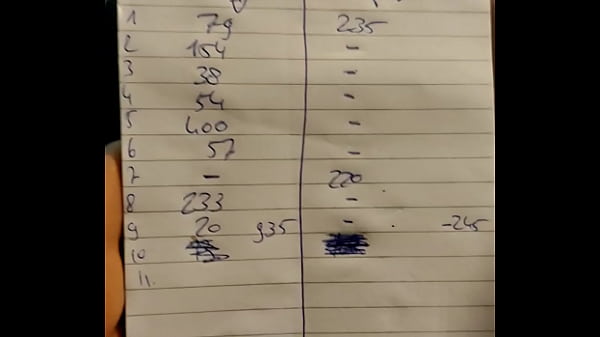 1 79 235
2 164 -
3 38 -
4 54 -
5 400 -
6 57 -
7 - 220
8 233 -
9 20 935 - -245
10
11.